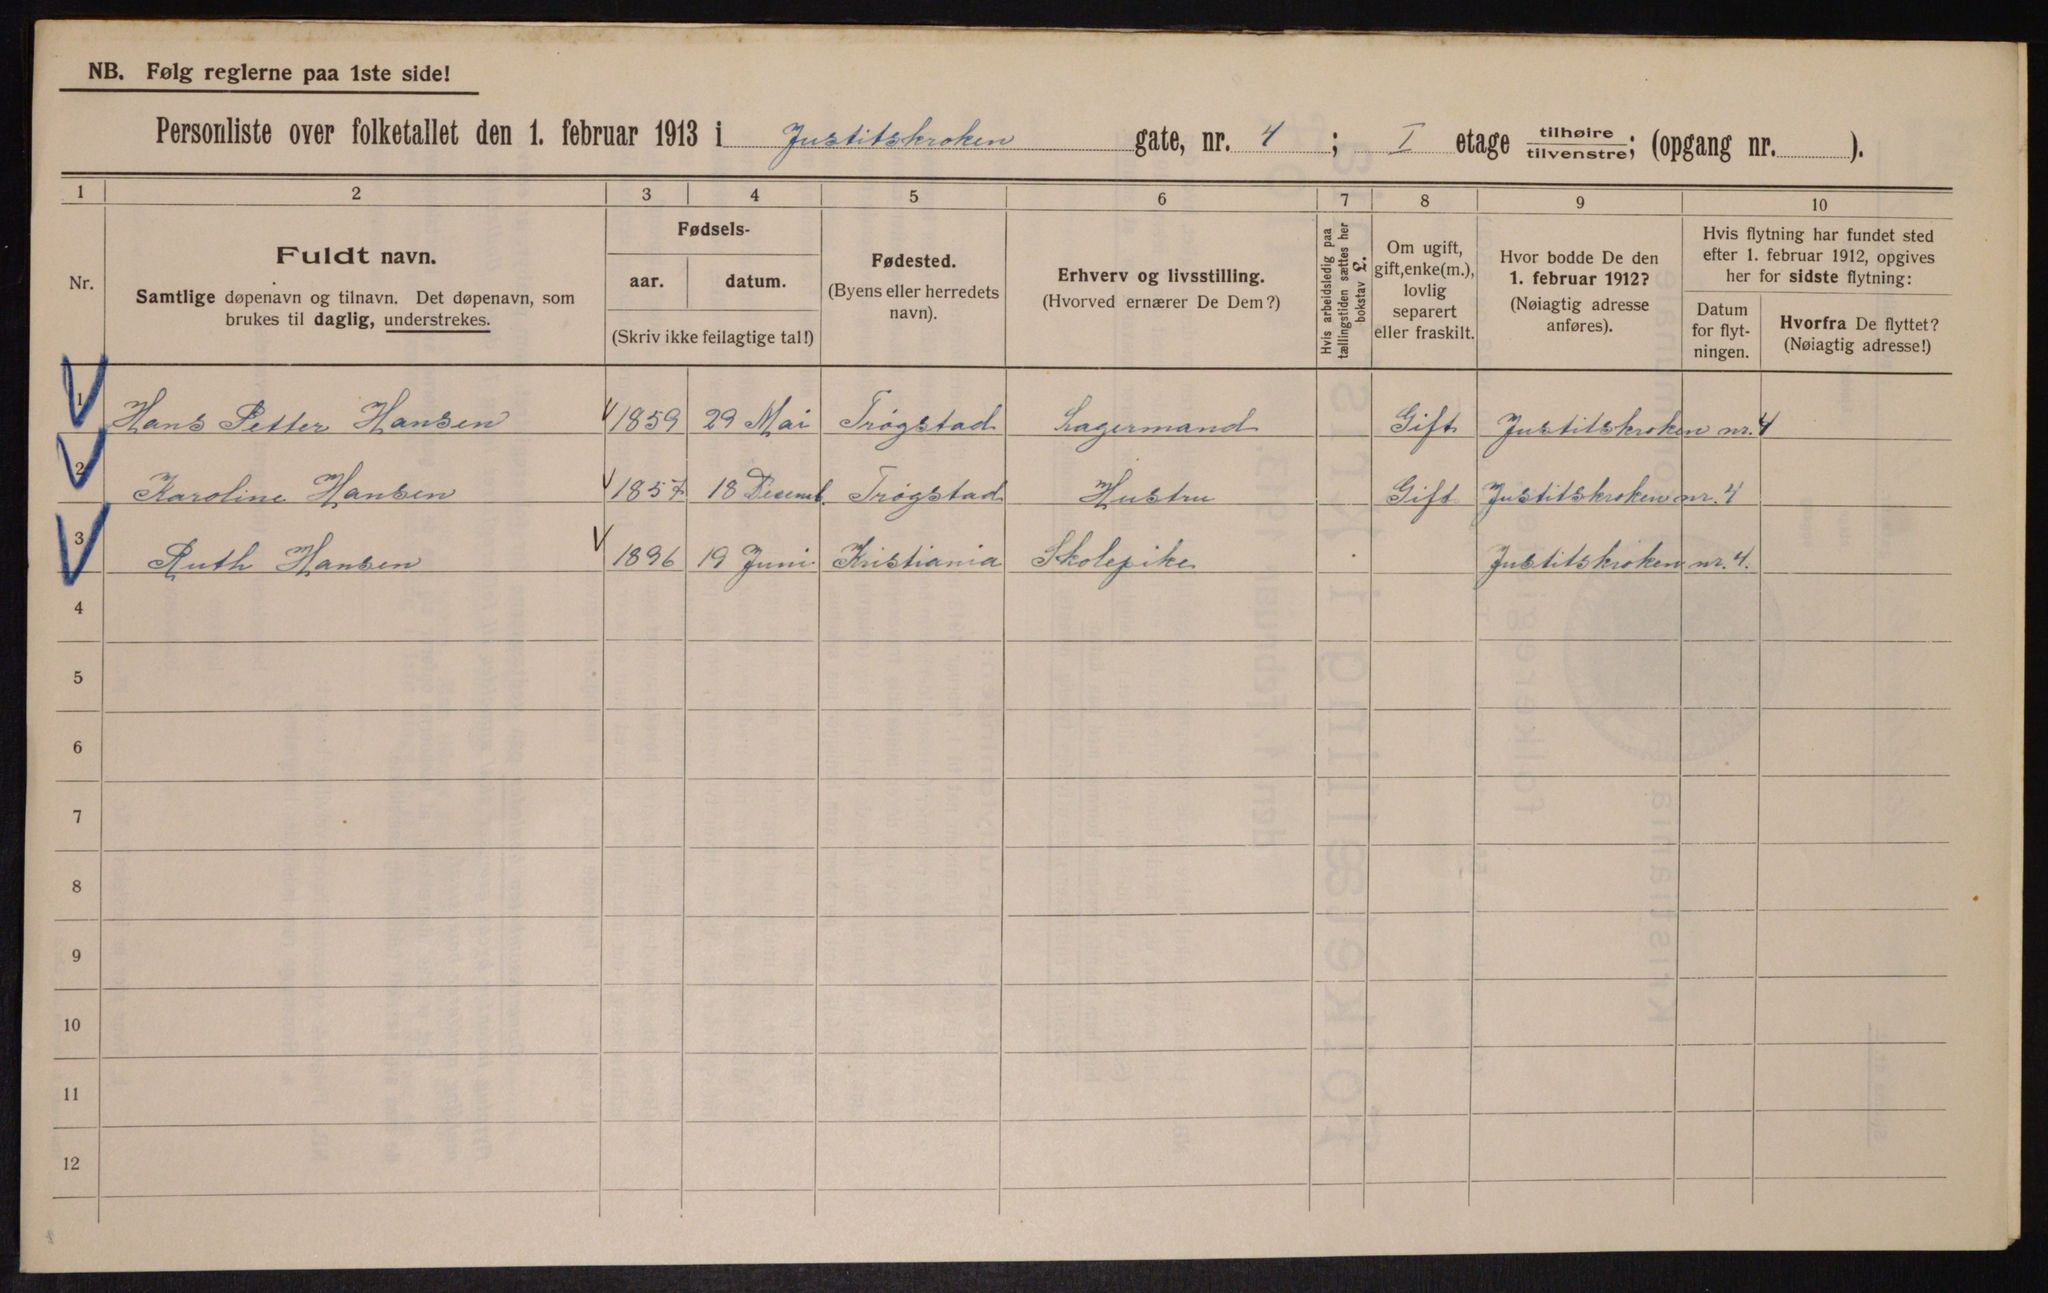 NB. Følg reglerne paa 1ste side!
Personliste over folketallet den 1. februar 1913 i Justitskroken gate, nr. 4 ; I etage tilhøire/tilvenstre; (opgang nr. ).
1 2 3 4 5 6 7 8 9 10
Nr.
Fuldt navn.
Samtlige døpenavn og tilnavn. Det døpenavn, som
brukes til daglig, understrekes.
Fødsels-
aar. datum.
(Skriv ikke feilagtige tal!)
Fødested.
(Byens eller herredets
navn).
Erhverv og livsstilling.
(Hvorved ernærer De Dem?)
Hvis arbeidsledig paa
tællingstiden sættes her
bokstav L.
Om ugift,
gift, enke(m.),
lovlig
separert
eller fraskilt.
Hvor bodde De den
1. februar 1912?
(Nøiagtig adresse
anføres).
Hvis flytning har fundet sted
efter 1. februar 1912, opgives
her for sidste flytning:
Datum
for flyt-
ningen.
Hvorfra De flyttet?
(Nøiagtig adresse!)
1 Hans Petter Hansen 1859 29 Mai Trøgstad Lagermand Gift Justitskroken nr. 4
2 Karoline Hansen 1857 18 Desemb. Trøgstad Hustru Gift Justitskroken nr. 4
3 Ruth Hansen 1896 19 Juni Kristiania Skolepike Justitskroken nr. 4.
4
5
6
7
8
9
10
11
12